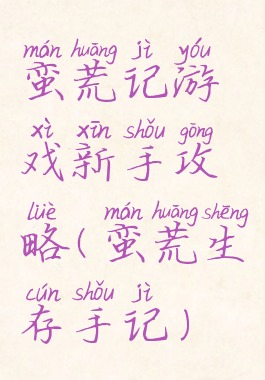 mán huāng jì yóu
蛮荒记游
xì xīn shǒu gōng
戏新手攻
lüè mán huāng shēng
略(蛮荒生
cún shǒu jì
存手记)